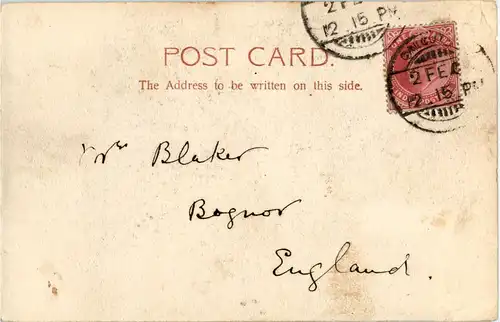 2 FE
12 15 PM
POST CARD.
The Address to be written on this side.
2 FE
12 15 PM
Mrs Blaker
Bognor
England.